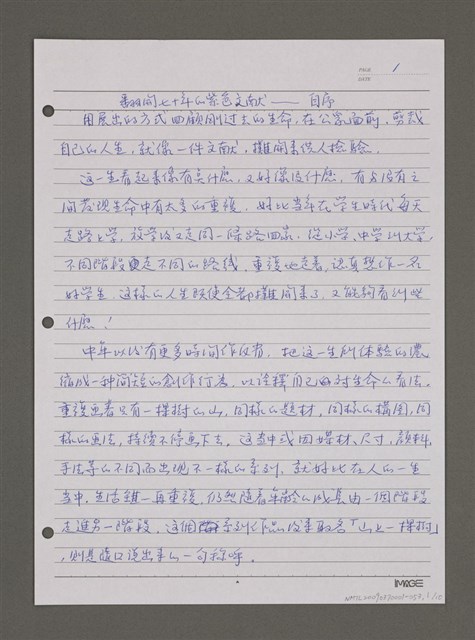 PAGE 1
DATE
翻開七十年的紫色文献——自序
用展出的方式回顧剛过去的生命,在公眾面前,剪裁
自己的人生,就像一件文献,攤開来供人檢驗。
这一生看起来像有点什麽,又好像没什麽,有与没有之
間发現生命中有太多的重複,好比当年在学生時代每天
走路上学,放学後又走同一條路回家,從小学、中学到大学,
不同階段走不同的路線,重複地走着,認真想作一名
好学生,这樣的人生既使全部攤開来了,又能夠看到些
什麽!
中年以後有更多時間作畫,把这一生所体驗的濃
縮成一种简短的創作行為,以詮釋自己对生命的看法。
重複画着只有一棵樹的山,同樣的題材,同樣的構图,同
樣的画法,持續不停画下去。这当中或因媒材、尺寸、顏料、
手法等的不同而出現不一樣的系列,就好比在人的一生
当中,生活雖一再重複,仍然隨着年齡的成長由一個階段
走進另一階段,这個系列作品後来取名「山上一棵樹」
,則是隨口說出来的一句称呼。
IMAGE